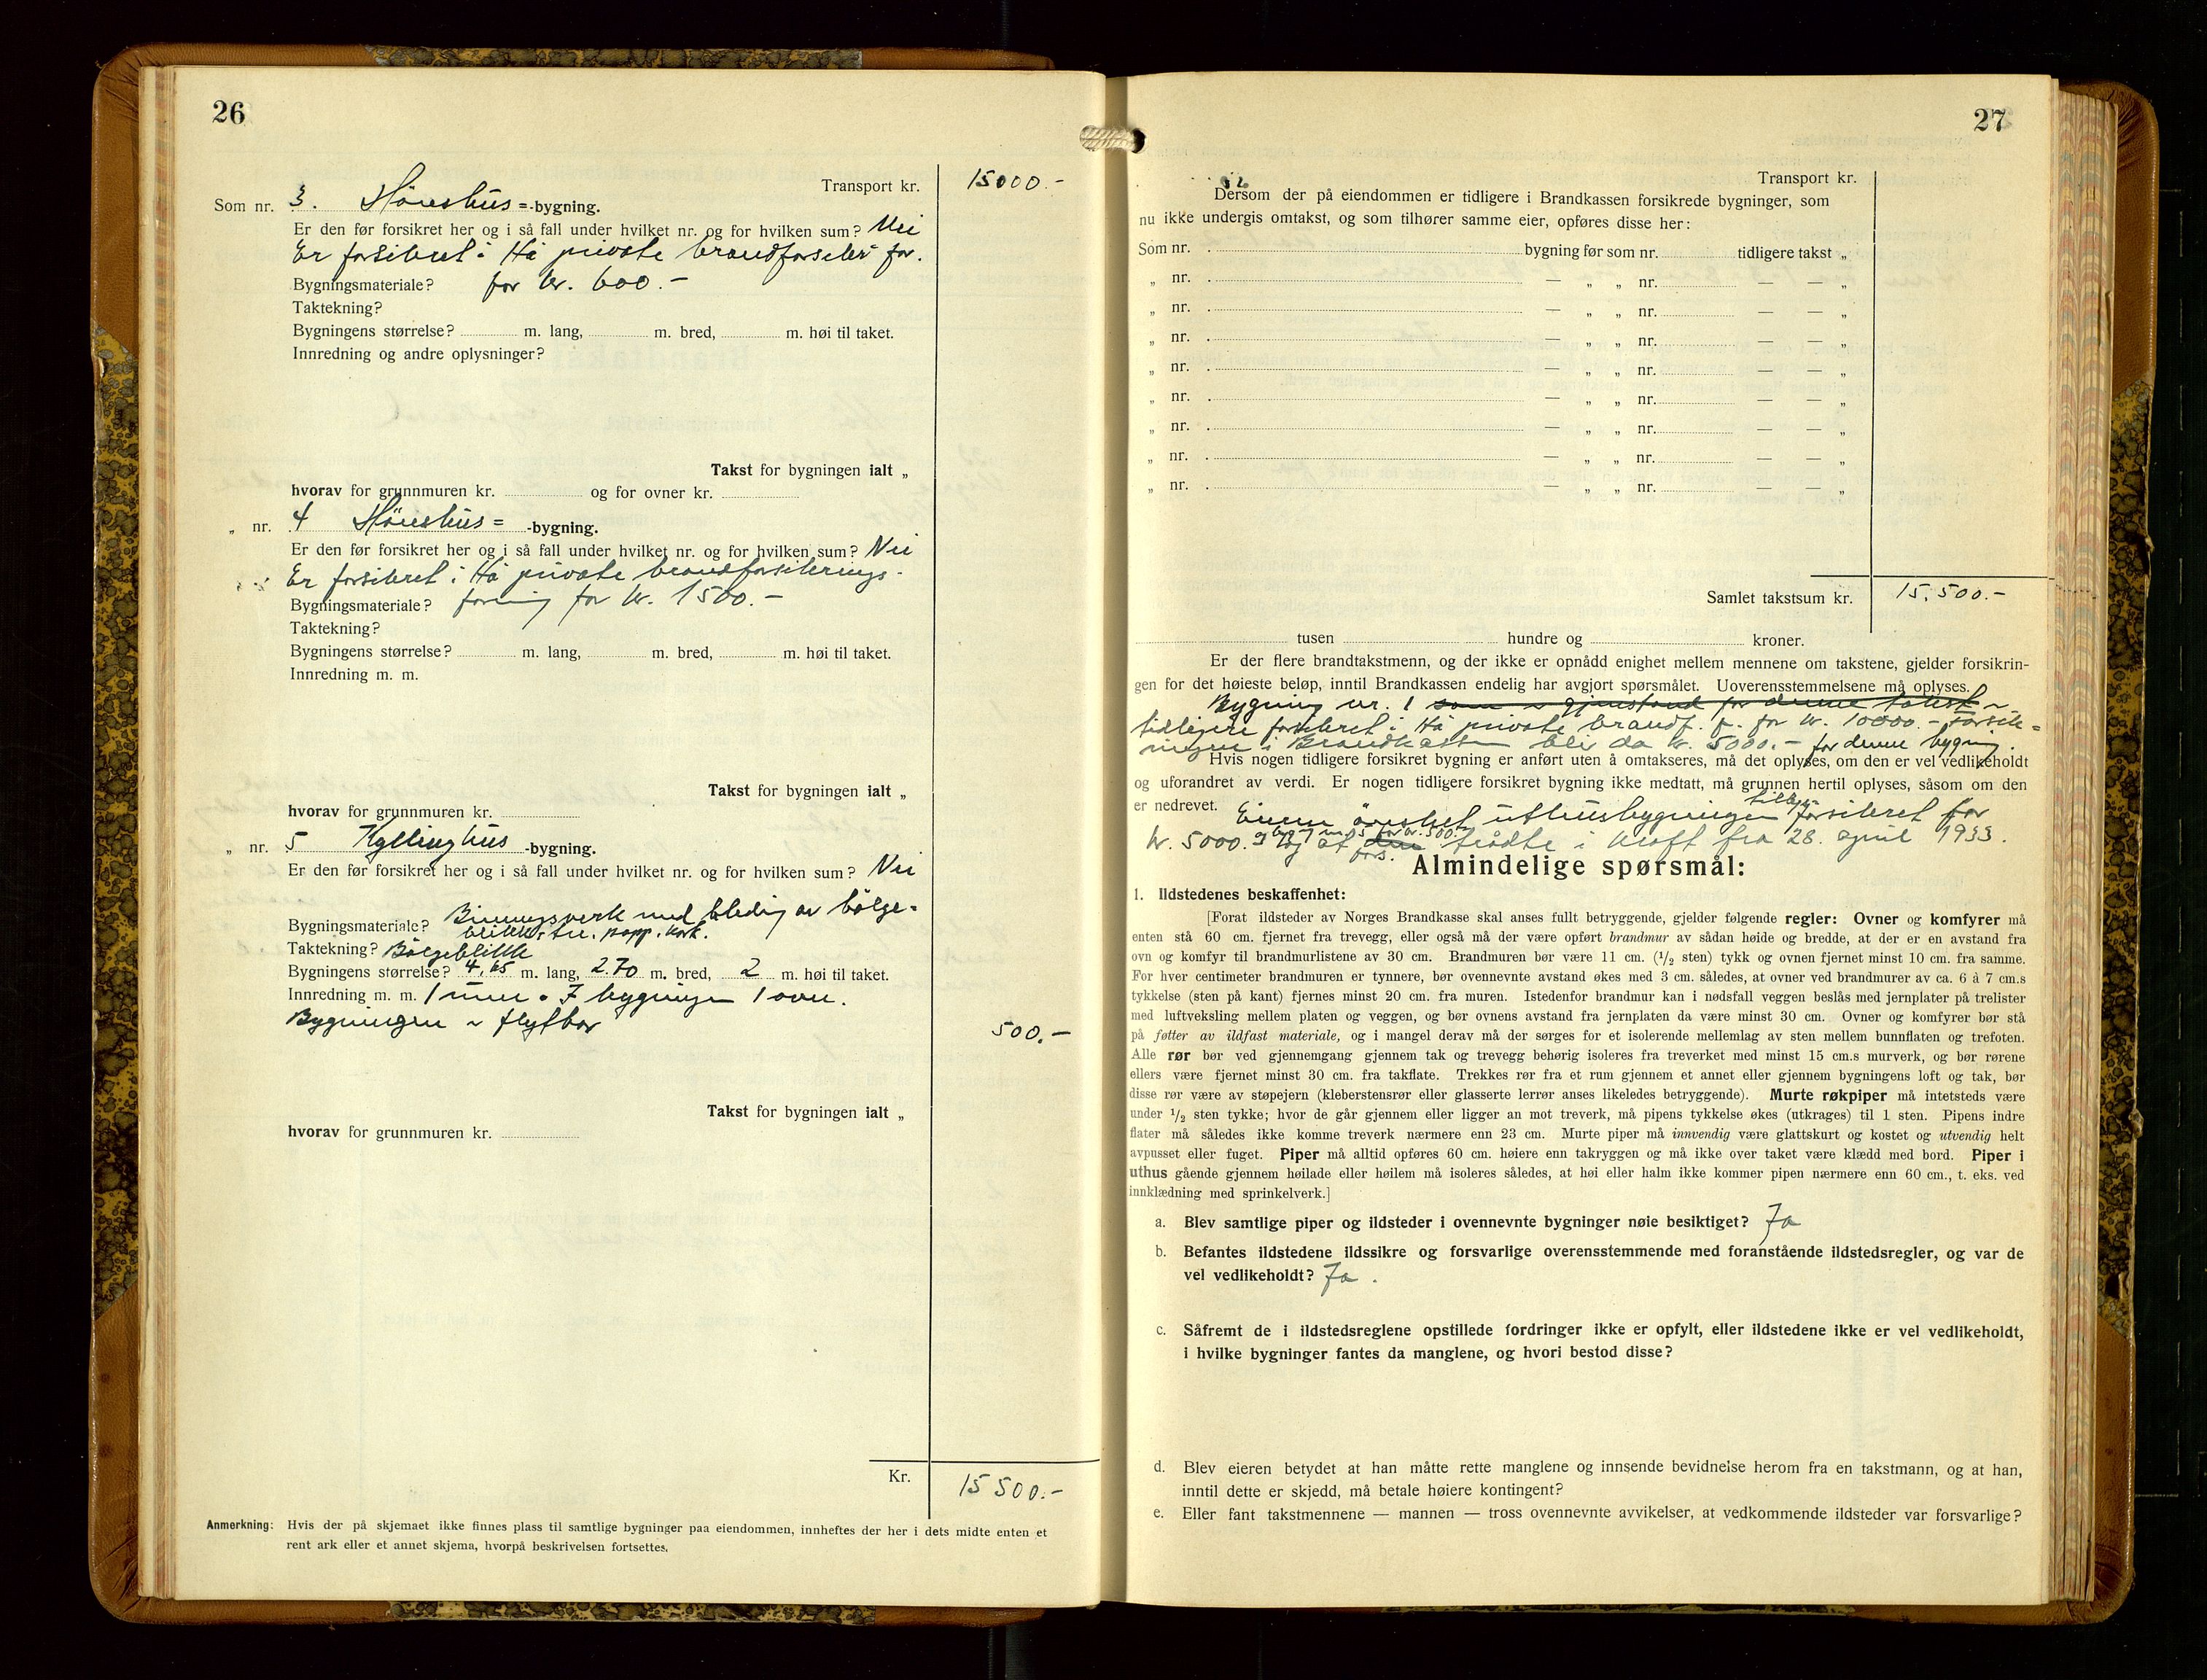 26
Transport kr. 15000.-
Som nr. 3. Hönshus=-bygning.
Er den før forsikret her og i så fall under hvilket nr. og for hvilken sum? Nei
Er forsikret i Hå private brandforsikr for.
Bygningsmateriale? for kr. 600.-
Taktekning?
Bygningens størrelse? m. lang, m. bred, m. høi til taket.
Innredning og andre oplysninger?
Takst for bygningen ialt „
hvorav for grunnmuren kr. og for ovner kr.
„ nr. 4 Hönshus= -bygning.
Er den før forsikret her og i så fall under hvilket nr. og for hvilken sum? Nei
Er forsikret i Hå private brandforsikrings-
Bygningsmateriale? forening for kr. 1500.-
Taktekning?
Bygningens størrelse? m. lang, m. bred, m. høi til taket.
Innredning m. m.
Takst for bygningen ialt „
hvorav for grunnmuren kr.
„ nr. 5 Kyllinghus -bygning.
Er den før forsikret her og i så fall under hvilket nr. og for hvilken sum? Nei
Bygningsmateriale? Binningsverk med kledning av bölge-
blikk, tre, papp, kork.
Taktekning? Bölgeblikk
Bygningens størrelse? 4,65 m. lang, 2.70 m. bred, 2 m. høi til taket.
Innredning m. m. 1 rum. I bygningen 1 ovn.
Bygningen er flytbar 500.-
Takst for bygningen ialt „
hvorav for grunnmuren kr.
Kr. 15500.-
Anmerkning: Hvis der på skjemaet ikke finnes plass til samtlige bygninger paa eiendommen, innheftes der her i dets midte enten et
rent ark eller et annet skjema, hvorpå beskrivelsen fortsettes.
27
Transport kr.
Dersom der på eiendommen er tidligere i Brandkassen forsikrede bygninger, som
nu ikke undergis omtakst, og som tilhører samme eier, opføres disse her:
Som nr. bygning før som nr. tidligere takst „
„ nr. — „ „ nr. — — „
„ nr. — „ „ nr. — — „
„ nr. — „ „ nr. — — „
„ nr. — „ „ nr. — — „
„ nr. — „ „ nr. — — „
„ nr. — „ „ nr. — — „
„ nr. — „ „ nr. — — „
„ nr. — „ „ nr. — — „
Samlet takstsum kr. 15,500.-
tusen hundre og kroner.
Er der flere brandtakstmenn, og der ikke er opnådd enighet mellem mennene om takstene, gjelder forsikrin-
gen for det høieste beløp, inntil Brandkassen endelig har avgjort spørsmålet. Uoverensstemmelsene må oplyses.
Bygning nr. 1 som er gjenstand for denne takst er
tidligere forsikret i Hå private brandf. f. for kr. 10000.- Forsik-
ringen i Brandkassen blir da kr. 5000.- for denne bygning.
Hvis nogen tidligere forsikret bygning er anført uten å omtakseres, må det oplyses, om den er vel vedlikeholdt
og uforandret av verdi. Er nogen tidligere forsikret bygning ikke medtatt, må grunnen hertil oplyses, såsom om den
er nedrevet. Eieren önsket uthusbygningen forsikret for
kr. 5000. og bygn. nr. 5 for kr. 500.- og at den fors. trådte i kraft fra 28. april 1933.
Almindelige spørsmål:
1. Ildstedenes beskaffenhet:
[Forat ildsteder av Norges Brandkasse skal anses fullt betryggende, gjelder følgende regler: Ovner og komfyrer må
enten stå 60 cm. fjernet fra trevegg, eller også må der være opført brandmur av sådan høide og bredde, at der er en avstand fra
ovn og komfyr til brandmurlistene av 30 cm. Brandmuren bør være 11 cm. (1/2 sten) tykk og ovnen fjernet minst 10 cm. fra samme.
For hver centimeter brandmuren er tynnere, bør ovennevnte avstand økes med 3 cm. således, at ovner ved brandmurer av ca. 6 à 7 cm.s
tykkelse (sten på kant) fjernes minst 20 cm. fra muren. Istedenfor brandmur kan i nødsfall veggen beslås med jernplater på trelister
med luftveksling mellem platen og veggen, og bør ovnens avstand fra jernplaten da være minst 30 cm. Ovner og komfyrer bør stå
på føtter av ildfast materiale, og i mangel derav må der sørges for et isolerende mellemlag av sten mellem bunnflaten og trefoten.
Alle rør bør ved gjennemgang gjennem tak og trevegg behørig isoleres fra treverket med minst 15 cm.s murverk, og bør rørene
ellers være fjernet minst 30 cm. fra takflate. Trekkes rør fra et rum gjennem et annet eller gjennem bygningens loft og tak, bør
disse rør være av støpejern (kleberstensrør eller glasserte lerrør anses likeledes betryggende). Murte røkpiper må intetsteds være
under 1/2 sten tykke; hvor de går gjennem eller ligger an mot treverk, må pipens tykkelse økes (utkrages) til 1 sten. Pipens indre
flater må således ikke komme treverk nærmere enn 23 cm. Murte piper må innvendig være glattskurt og kostet og utvendig helt
avpusset eller fuget. Piper må alltid opføres 60 cm. høiere enn takryggen og må ikke over taket være klædd med bord. Piper i
uthus gående gjennem høilade eller høilem må isoleres således, at høi eller halm ikke kommer pipen nærmere enn 60 cm., t. eks. ved
innklædning med sprinkelverk.]
a. Blev samtlige piper og ildsteder i ovennevnte bygninger nøie besiktiget? Ja
b. Befantes ildstedene ildssikre og forsvarlige overensstemmende med foranstående ildstedsregler, og var de
vel vedlikeholdt? Ja.
c. Såfremt de i ildstedsreglene opstillede fordringer ikke er opfylt, eller ildstedene ikke er vel vedlikeholdt,
i hvilke bygninger fantes da manglene, og hvori bestod disse?
d. Blev eieren betydet at han måtte rette manglene og innsende bevidnelse herom fra en takstmann, og at han,
inntil dette er skjedd, må betale høiere kontingent?
e. Eller fant takstmennene — mannen — tross ovennevnte avvikelser, at vedkommende ildsteder var forsvarlige?